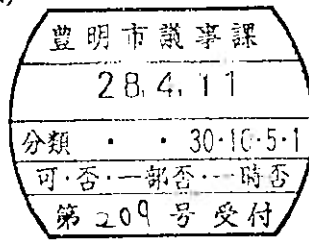 豊明市議事課
28.4.11
分類 ・ ・ 30・10・5・1
可・否・一部否・一時否
第209号受付